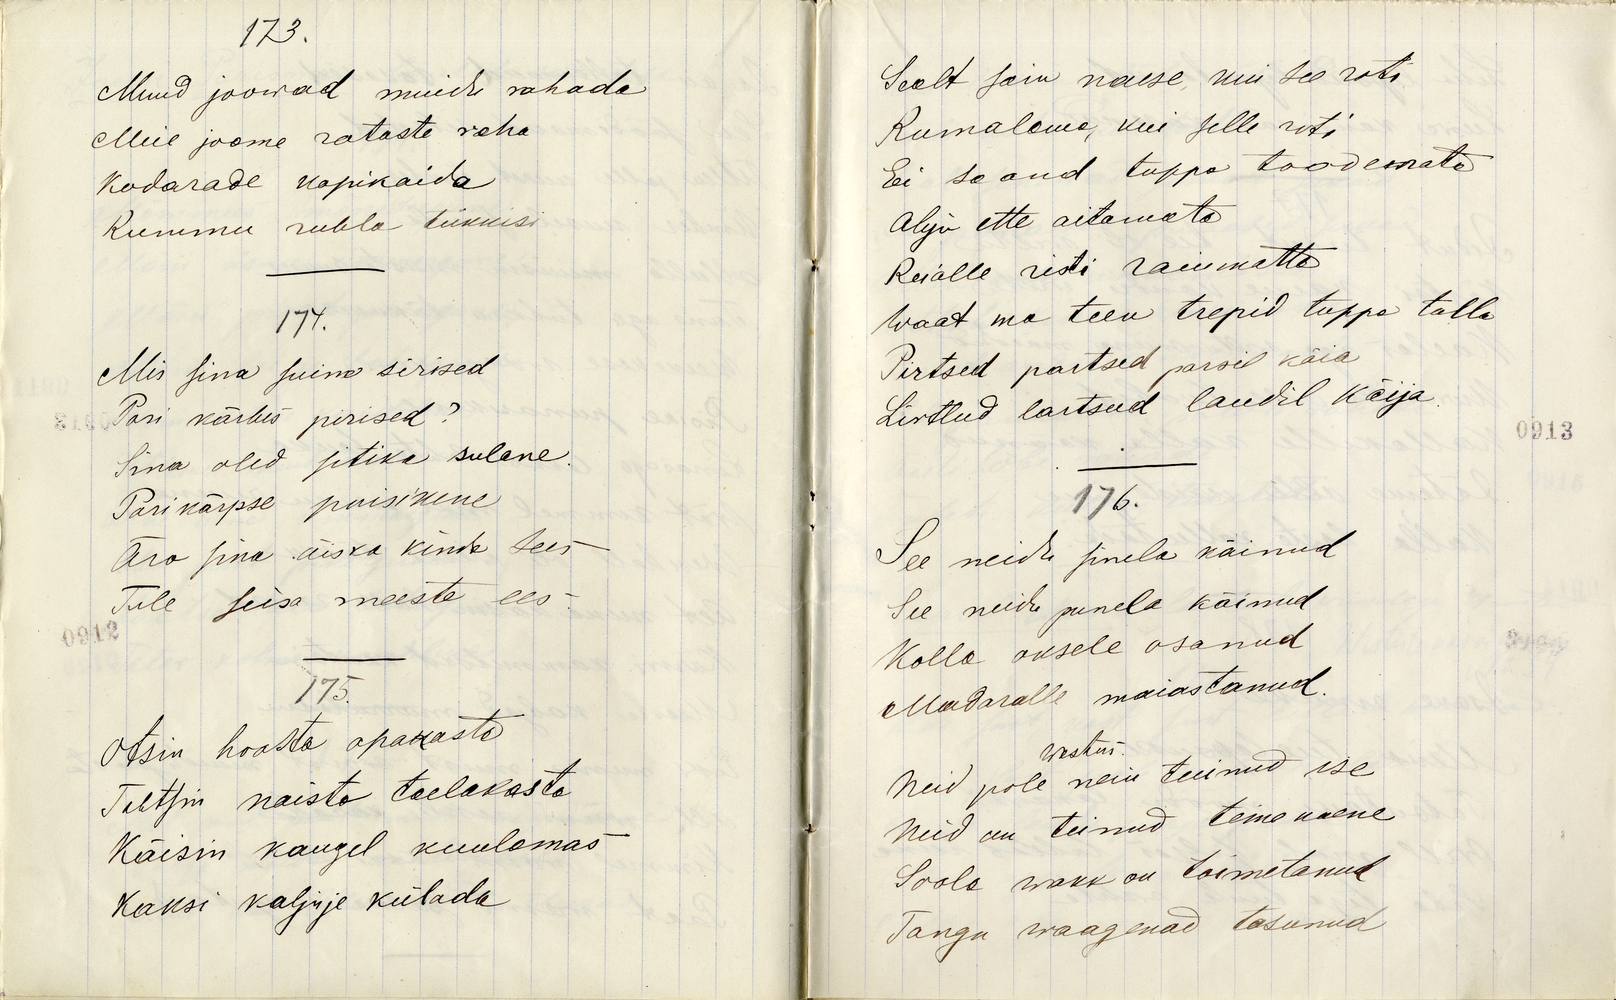 173.
Muud joowad muidu rahada
Meie joome rataste raha
Kodarade kopikaida
Rummu rubla tükkisi
174.
Mis sina siina sirised
Pori kärbes pirised?
Sina oled sitika sulane.
Porikärpse poisikene
Ära sina äiska kinda sees
Tule seisa meeste ees
0912
175.
Otsin hoosta opakasta
Tahtsin naista taelakasta
Käisin kaugel kuulamas
Kaksi kaljuje külada
Sealt sain naese, kui see roti
Rumalama, kui selle roti
Ei saand tuppa toodemata
Alju ette aitamata
Reialle risti raiumatta
Waat ma teen trepid tuppa talla
Pirtsed partsed parsil käia
Lirtsud lartsud laudil käija.
0913
176.
See neidu sinela käinud
See neidu punela käinud
Kolla oksele osanud
Madaralle maiastanud.
westus.
Neid pole nein teinud ise
Neid on teinud teine naene
Soola wakk on toimetanud
Tangu waagenad tasunud